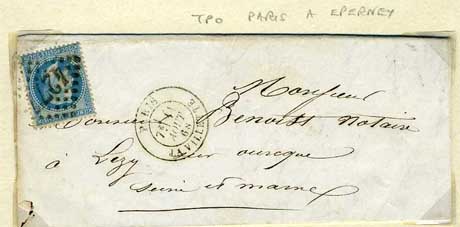 TPO PARIS A EPERNEY
Monsieur
Monsieur Benoist Notaire
à Lizy sur ourcq
Seine et marne
PARIS
AOUT
68
LA VILLETTE